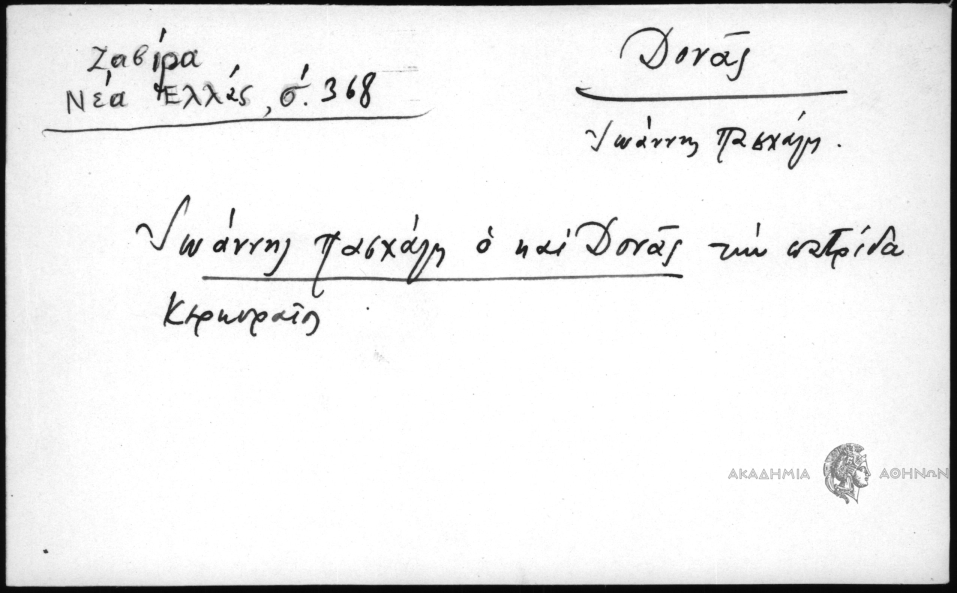 Ζαβίρα
Νέα Ἑλλάς, σ. 368
Δονᾶς
Ἰωάννης Πασχάλη.
Ἰωάννης Πασχάλη ὁ καὶ Δονᾶς τὴν πατρίδα
Κερκυραῖος
ΑΚΑΔΗΜΙΑ ΑΘΗΝΩΝ